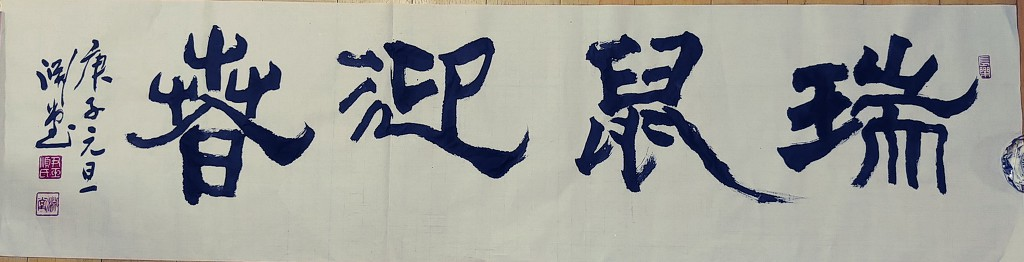 瑞鼠迎春
庚子元旦